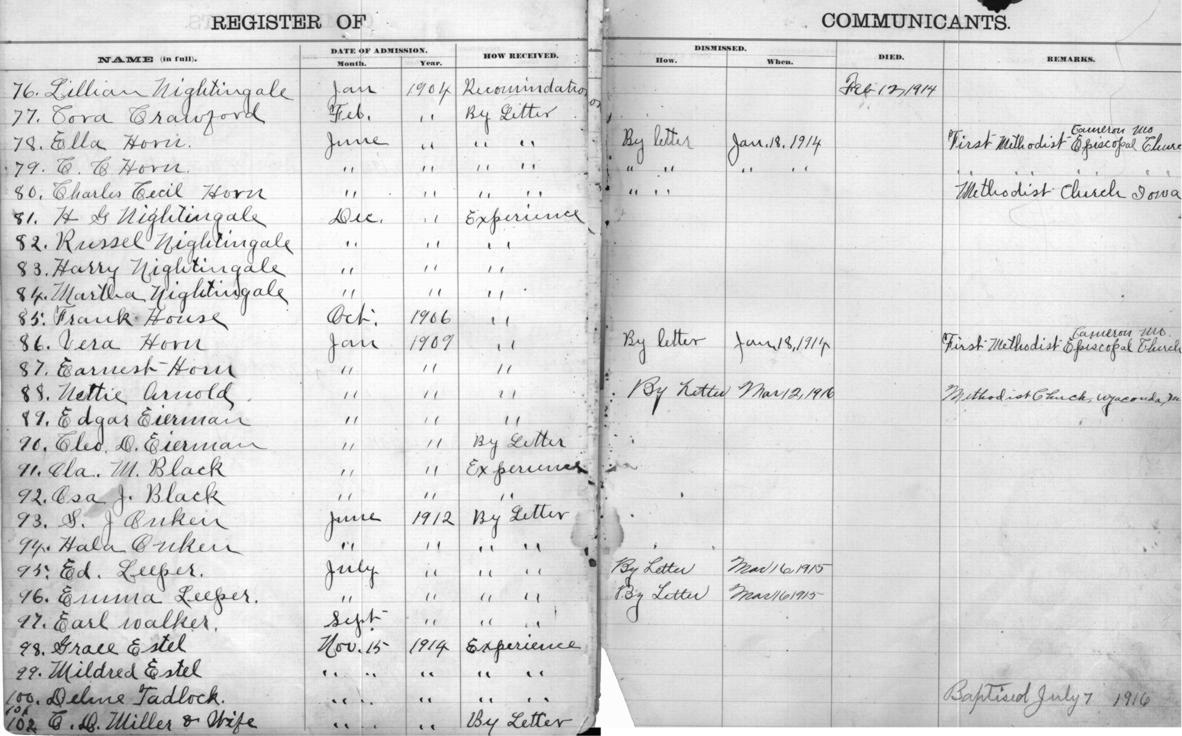 REGISTER OF COMMUNICANTS.
NAME (in full). DATE OF ADMISSION. Month. Year. HOW RECEIVED. DISMISSED. How. When. DIED. REMARKS.
76. Lillian Nightingale Jan 1904 Recomindation Feb 12, 1914
77. Cora Crawford Feb. " By Letter
Cameron Mo
78. Ella Horn. June " " " By letter Jan. 18, 1914 First Methodist Episcopal Church
79. C. C Horn. " " " " " " " " " " " "
80. Charles Cecil Horn " " " " " " Methodist Church Iowa
81. H G Nightingale Dec. " Experience
82. Russel Nightingale " " "
83. Harry Nightingale " " "
84. Martha Nightingale " " "
85. Frank House Oct. 1906 "
Cameron Mo.
86. Vera Horn Jan 1909 " By letter Jan, 18, 1914 First Methodist Episcopal Church
87. Earnest Horn " " "
88. Nettie Arnold. " " " By Letter Mar 12, 1916 Methodist Church, Wyaconda, Mo
89. Edgar Eierman " " "
90. Cleo. D. Eierman " " By Letter
91. Ola. M. Black " " Experience
92. Osa J. Black " " "
93. S. J Onken June 1912 By Letter
94. Hala Onken " " " "
95. Ed. Leeper. July " " " By Letter Mar 16 1915
96. Emma Leeper. " " " " By Letter Mar 16 1915
97. Earl walker. Sept " " "
98. Grace Estel Nov. 15 1914 Experience
99. Mildred Estel " " " " "
100. Delme Tadlock. " " " " " Baptised July 7 1916
101
102 C. D. Miller & Wife " " " By Letter